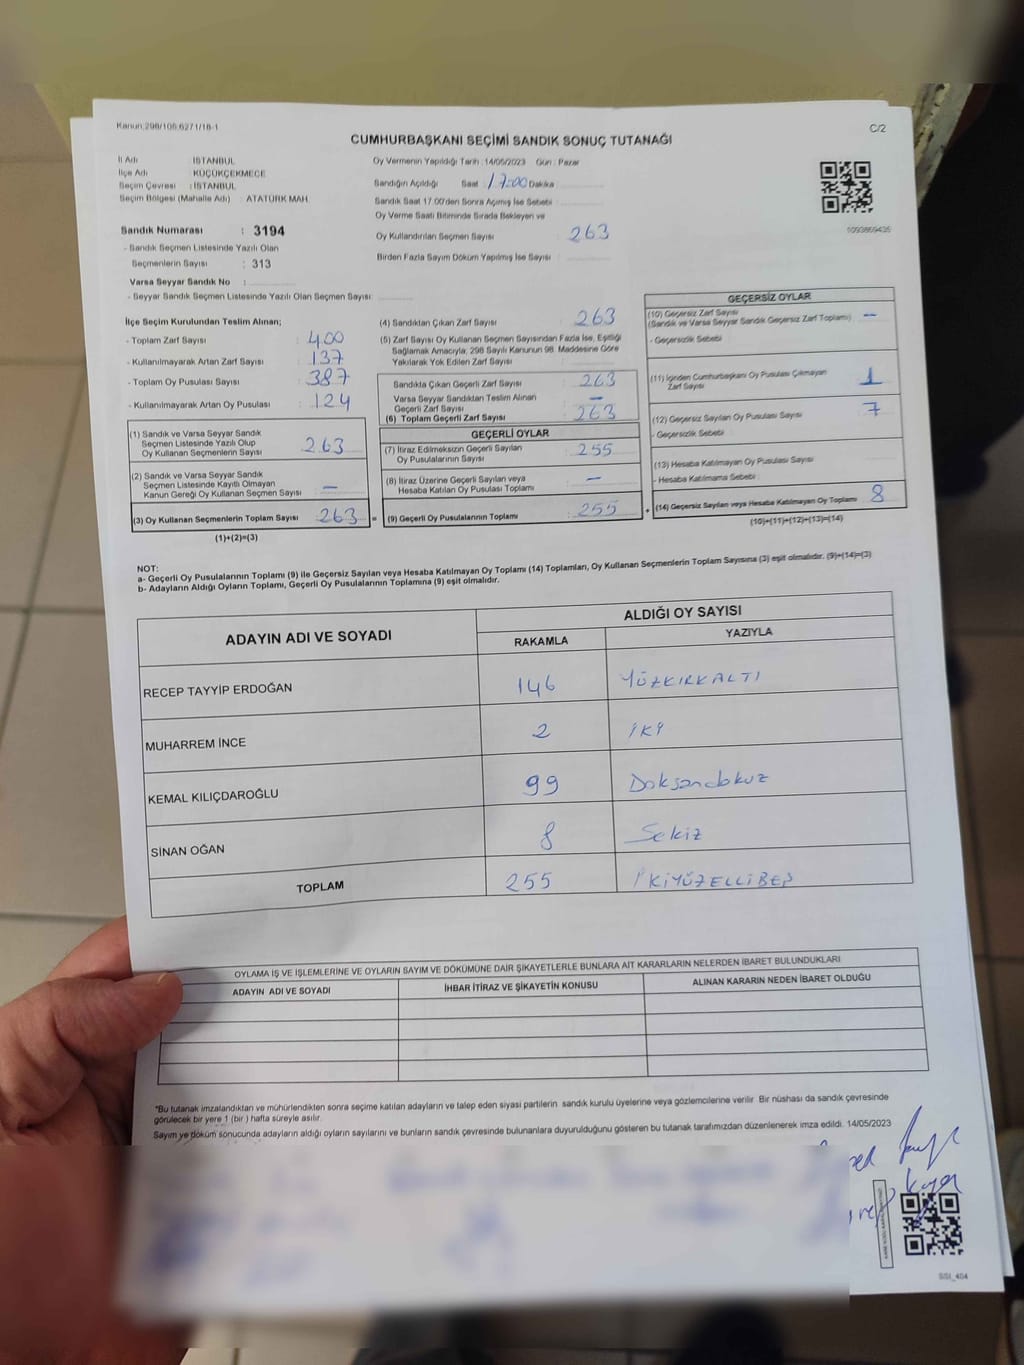 Kanun:298/105;6271/18-1
C/2
CUMHURBAŞKANI SEÇİMİ SANDIK SONUÇ TUTANAĞI
İl Adı : İSTANBUL
İlçe Adı : KÜÇÜKÇEKMECE
Seçim Çevresi : İSTANBUL
Seçim Bölgesi (Mahalle Adı) : ATATÜRK MAH.
Oy Vermenin Yapıldığı Tarih : 14/05/2023 Gün : Pazar
Sandığın Açıldığı Saat : 17:00 Dakika
Sandık Saat 17.00'den Sonra Açılmış İse Sebebi :
Oy Verme Saati Bitiminde Sırada Bekleyen ve
Oy Kullandırılan Seçmen Sayısı : 263
Birden Fazla Sayım Döküm Yapılmış İse Sayısı :
1093869435
Sandık Numarası : 3194
- Sandık Seçmen Listesinde Yazılı Olan
Seçmenlerin Sayısı : 313
Varsa Seyyar Sandık No :
- Seyyar Sandık Seçmen Listesinde Yazılı Olan Seçmen Sayısı:
İlçe Seçim Kurulundan Teslim Alınan;
- Toplam Zarf Sayısı : 400
- Kullanılmayarak Artan Zarf Sayısı : 137
- Toplam Oy Pusulası Sayısı : 387
- Kullanılmayarak Artan Oy Pusulası : 124
(1) Sandık ve Varsa Seyyar Sandık
Seçmen Listesinde Yazılı Olup
Oy Kullanan Seçmenlerin Sayısı : 263
(2) Sandık ve Varsa Seyyar Sandık
Seçmen Listesinde Kayıtlı Olmayan
Kanun Gereği Oy Kullanan Seçmen Sayısı : —
(3) Oy Kullanan Seçmenlerin Toplam Sayısı : 263 =
(1)+(2)=(3)
(4) Sandıktan Çıkan Zarf Sayısı : 263
(5) Zarf Sayısı Oy Kullanan Seçmen Sayısından Fazla İse, Eşitliği
Sağlamak Amacıyla; 298 Sayılı Kanunun 98. Maddesine Göre
Yakılarak Yok Edilen Zarf Sayısı :
Sandıkta Çıkan Geçerli Zarf Sayısı : 263
Varsa Seyyar Sandıktan Teslim Alınan
Geçerli Zarf Sayısı : —
(6) Toplam Geçerli Zarf Sayısı : 263
GEÇERLİ OYLAR
(7) İtiraz Edilmeksizin Geçerli Sayılan
Oy Pusulalarının Sayısı : 255
(8) İtiraz Üzerine Geçerli Sayılan veya
Hesaba Katılan Oy Pusulası Toplamı : —
(9) Geçerli Oy Pusulalarının Toplamı : 255 +
GEÇERSİZ OYLAR
(10) Geçersiz Zarf Sayısı
(Sandık ve Varsa Seyyar Sandık Geçersiz Zarf Toplamı) : —
- Geçersizlik Sebebi :
(11) İçinden Cumhurbaşkanı Oy Pusulası Çıkmayan
Zarf Sayısı : 1
(12) Geçersiz Sayılan Oy Pusulası Sayısı : 7
- Geçersizlik Sebebi :
(13) Hesaba Katılmayan Oy Pusulası Sayısı :
- Hesaba Katılmama Sebebi :
(14) Geçersiz Sayılan veya Hesaba Katılmayan Oy Toplamı : 8
(10)+(11)+(12)+(13)=(14)
NOT:
a- Geçerli Oy Pusulalarının Toplamı (9) ile Geçersiz Sayılan veya Hesaba Katılmayan Oy Toplamı (14) Toplamları, Oy Kullanan Seçmenlerin Toplam Sayısına (3) eşit olmalıdır. (9)+(14)=(3)
b- Adayların Aldığı Oyların Toplamı, Geçerli Oy Pusulalarının Toplamına (9) eşit olmalıdır.
ADAYIN ADI VE SOYADI
ALDIĞI OY SAYISI
RAKAMLA YAZIYLA
RECEP TAYYİP ERDOĞAN 146 YÜZKIRKALTI
MUHARREM İNCE 2 İKİ
KEMAL KILIÇDAROĞLU 99 Doksandokuz
SİNAN OĞAN 8 Sekiz
TOPLAM 255 İKİYÜZELLİBEŞ
OYLAMA İŞ VE İŞLEMLERİNE VE OYLARIN SAYIM VE DÖKÜMÜNE DAİR ŞİKAYETLERLE BUNLARA AİT KARARLARIN NELERDEN İBARET BULUNDUKLARI
ADAYIN ADI VE SOYADI İHBAR İTİRAZ VE ŞİKAYETİN KONUSU ALINAN KARARIN NEDEN İBARET OLDUĞU
*Bu tutanak imzalandıktan ve mühürlendikten sonra seçime katılan adayların ve talep eden siyasi partilerin sandık kurulu üyelerine veya gözlemcilerine verilir. Bir nüshası da sandık çevresinde
görülecek bir yere 1 (bir ) hafta süreyle asılır.
Sayım ve döküm sonucunda adayların aldığı oyların sayılarını ve bunların sandık çevresinde bulunanlara duyurulduğunu gösteren bu tutanak tarafımızdan düzenlenerek imza edildi. 14/05/2023
SSI_404